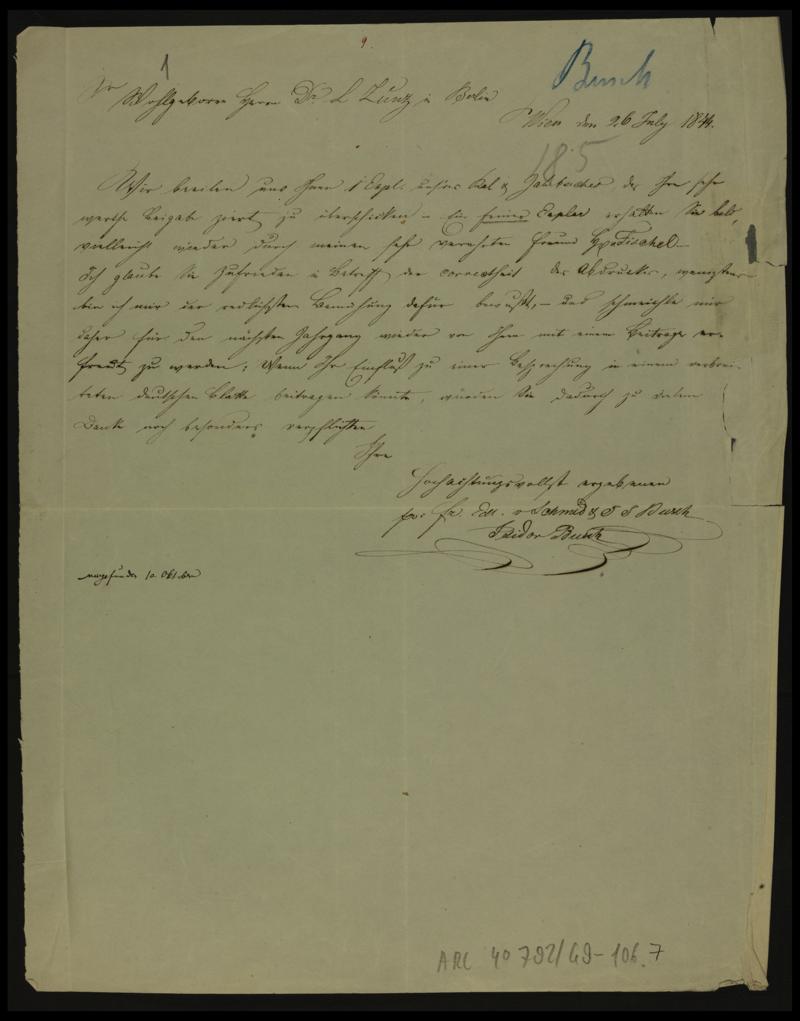 9.
1
Busch
Sr Wohlgeboren Herrn Dr. L Zunz in Berlin
Wien den 26 July 184
185
Wir beeilen uns Ihnen 1 Expl. unsres Kal & Jahrbuches das Ihre sehr
werthe Beigabe ziert zu überschicken – Ein feines Explar erhalten Sie bald,
vielleicht wieder durch meinen sehr verehrten Freund Fischel –
Ich glaube Sie zufrieden in Betreff der correctheit des Abdruckes, wenigstens
bin ich mir der redlichsten Bemühung dafür bewußt, – und schmeichle mir
daher für den nächsten Jahrgang wieder von Ihnen mit einem Beitrage er-
freut zu werden; Wenn Ihr Einfluß zu einer Besprechung in einem verbrei-
teten deutschen Blatte beitragen könnte, würden Sie dadurch zu vielem
Danke noch besonders verpflichten
Ihre
Hochachtungsvollst ergebenen
pr: fr. Edl. v Schmid & J J Busch
Isidor Busch
10 Oktober
ARC 4° 792/G9-106.7